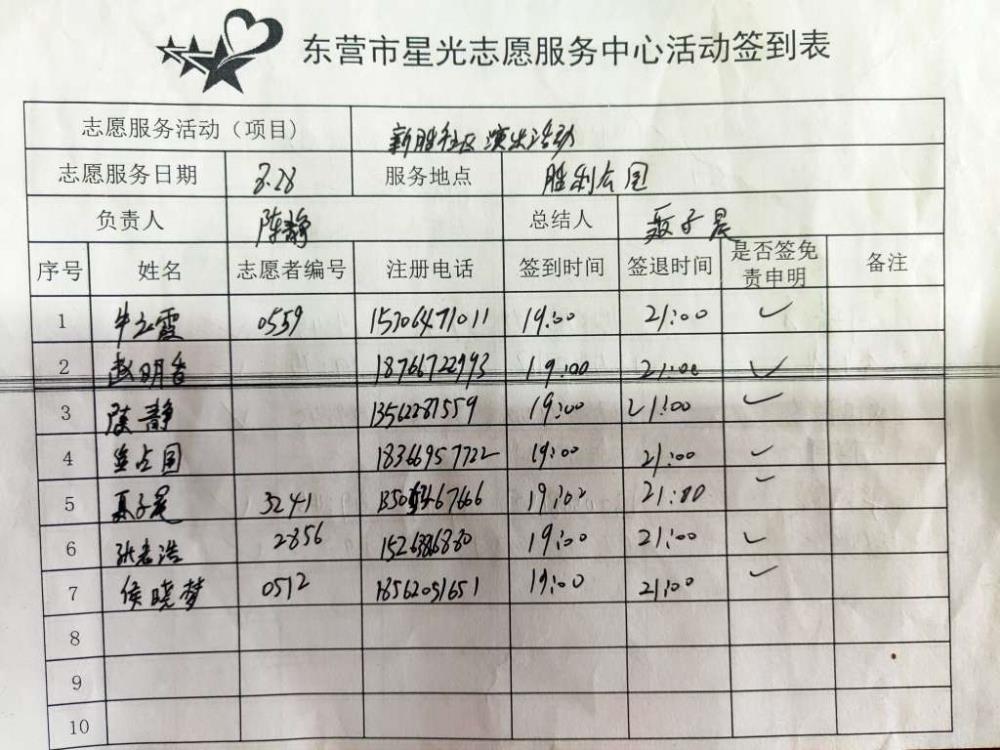 东营市星光志愿服务中心活动签到表
志愿服务活动（项目） 新胜社区演出活动
志愿服务日期 8.28 服务地点 胜利公园
负责人 陈静 总结人 聂子晨
序号 姓名 志愿者编号 注册电话 签到时间 签退时间 是否签免责申明 备注
1 牛云霞 0559 15706471011 19:00 21:00 ✓
2 赵明香 18766722993 19:00 21:00 ✓
3 陈静 13562281559 19:00 21:00 ✓
4 占国 18366957722 19:00 21:00 ✓
5 聂子晨 3241 19:00 21:00 ✓
6 张浩 2856 19:00 21:00 ✓
7 侯晓梦 0512 18562091651 19:00 21:00 ✓
8
9
10